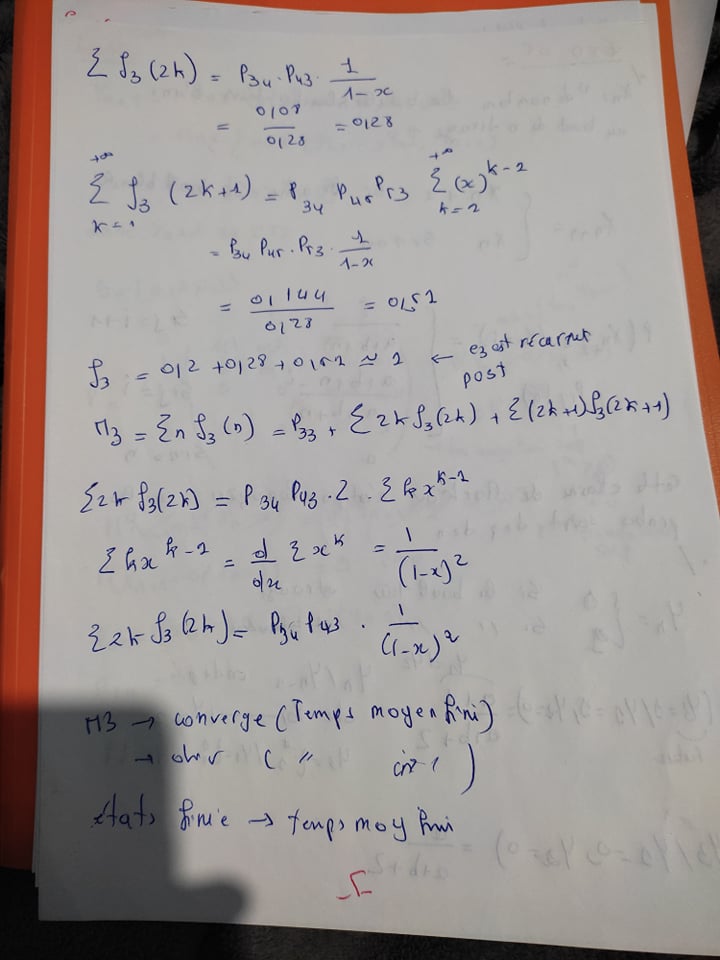 Σ f₃(2k) = P₃₄ · P₄₃ · 1/(1-x)
= 0,08/0,28 = 0,28
+∞ Σ k=1 f₃(2k+1) = P₃₄ P₄₅ P₅₃ +∞ Σ k=2 (x)^(k-2)
= P₃₄ P₄₅ · P₅₃ · 1/(1-x)
= 0,144/0,28 = 0,51
f₃ = 0,2 + 0,28 + 0,52 ≈ 1 ← e₃ est récurrent
post
M₃ = Σ n f₃(n) = P₃₃ + Σ 2k f₃(2k) + Σ (2k+1) f₃(2k+1)
Σ 2k f₃(2k) = P₃₄ P₄₃ · 2 · Σ k x^(k-1)
Σ k x^(k-1) = d/dx Σ x^k = 1/(1-x)²
Σ 2k f₃(2k) = P₃₄ P₄₃ · 1/(1-x)²
M3 → converge (Temps moyen fini)
→ ( " )
états finie → temps moy fini